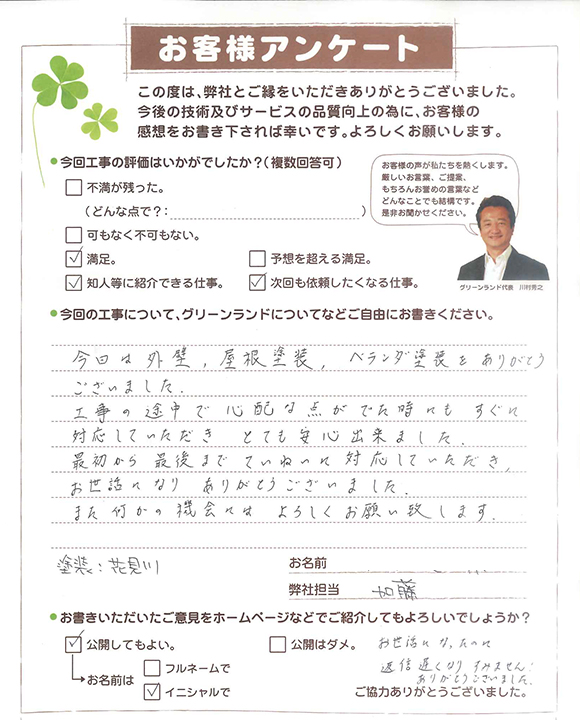 お客様アンケート
この度は、弊社とご縁をいただきありがとうございました。
今後の技術及びサービスの品質向上の為に、お客様の
感想をお書き下されば幸いです。よろしくお願いします。
今回工事の評価はいかがでしたか?(複数回答可)
不満が残った。
(どんな点で?: )
可もなく不可もない。
満足。
予想を超える満足。
知人等に紹介できる仕事。
次回も依頼したくなる仕事。
お客様の声が私たちを熱くします。
厳しいお言葉、ご提案、
もちろんお誉めの言葉など
どんなことでも結構です。
是非お聞かせください。
グリーンランド代表 川村芳之
今回の工事について、グリーンランドについてなどご自由にお書きください。
今回は外壁,屋根塗装,ベランダ塗装をありがとう
ございました.
工事の途中で心配な点がでた時にもすぐに
対応していただき とても安心出来ました.
最初から最後までていねいに対応していただき,
お世話になり ありがとうございました.
また何かの機会にはよろしくお願い致します.
塗装:花見川
お名前
弊社担当 加藤
お書きいただいたご意見をホームページなどでご紹介してもよろしいでしょうか?
公開してもよい。
公開はダメ。
お名前は
フルネームで
イニシャルで
お世話になったのに
返信遅くなりすみません.
ありがとうございました.
ご協力ありがとうございました。